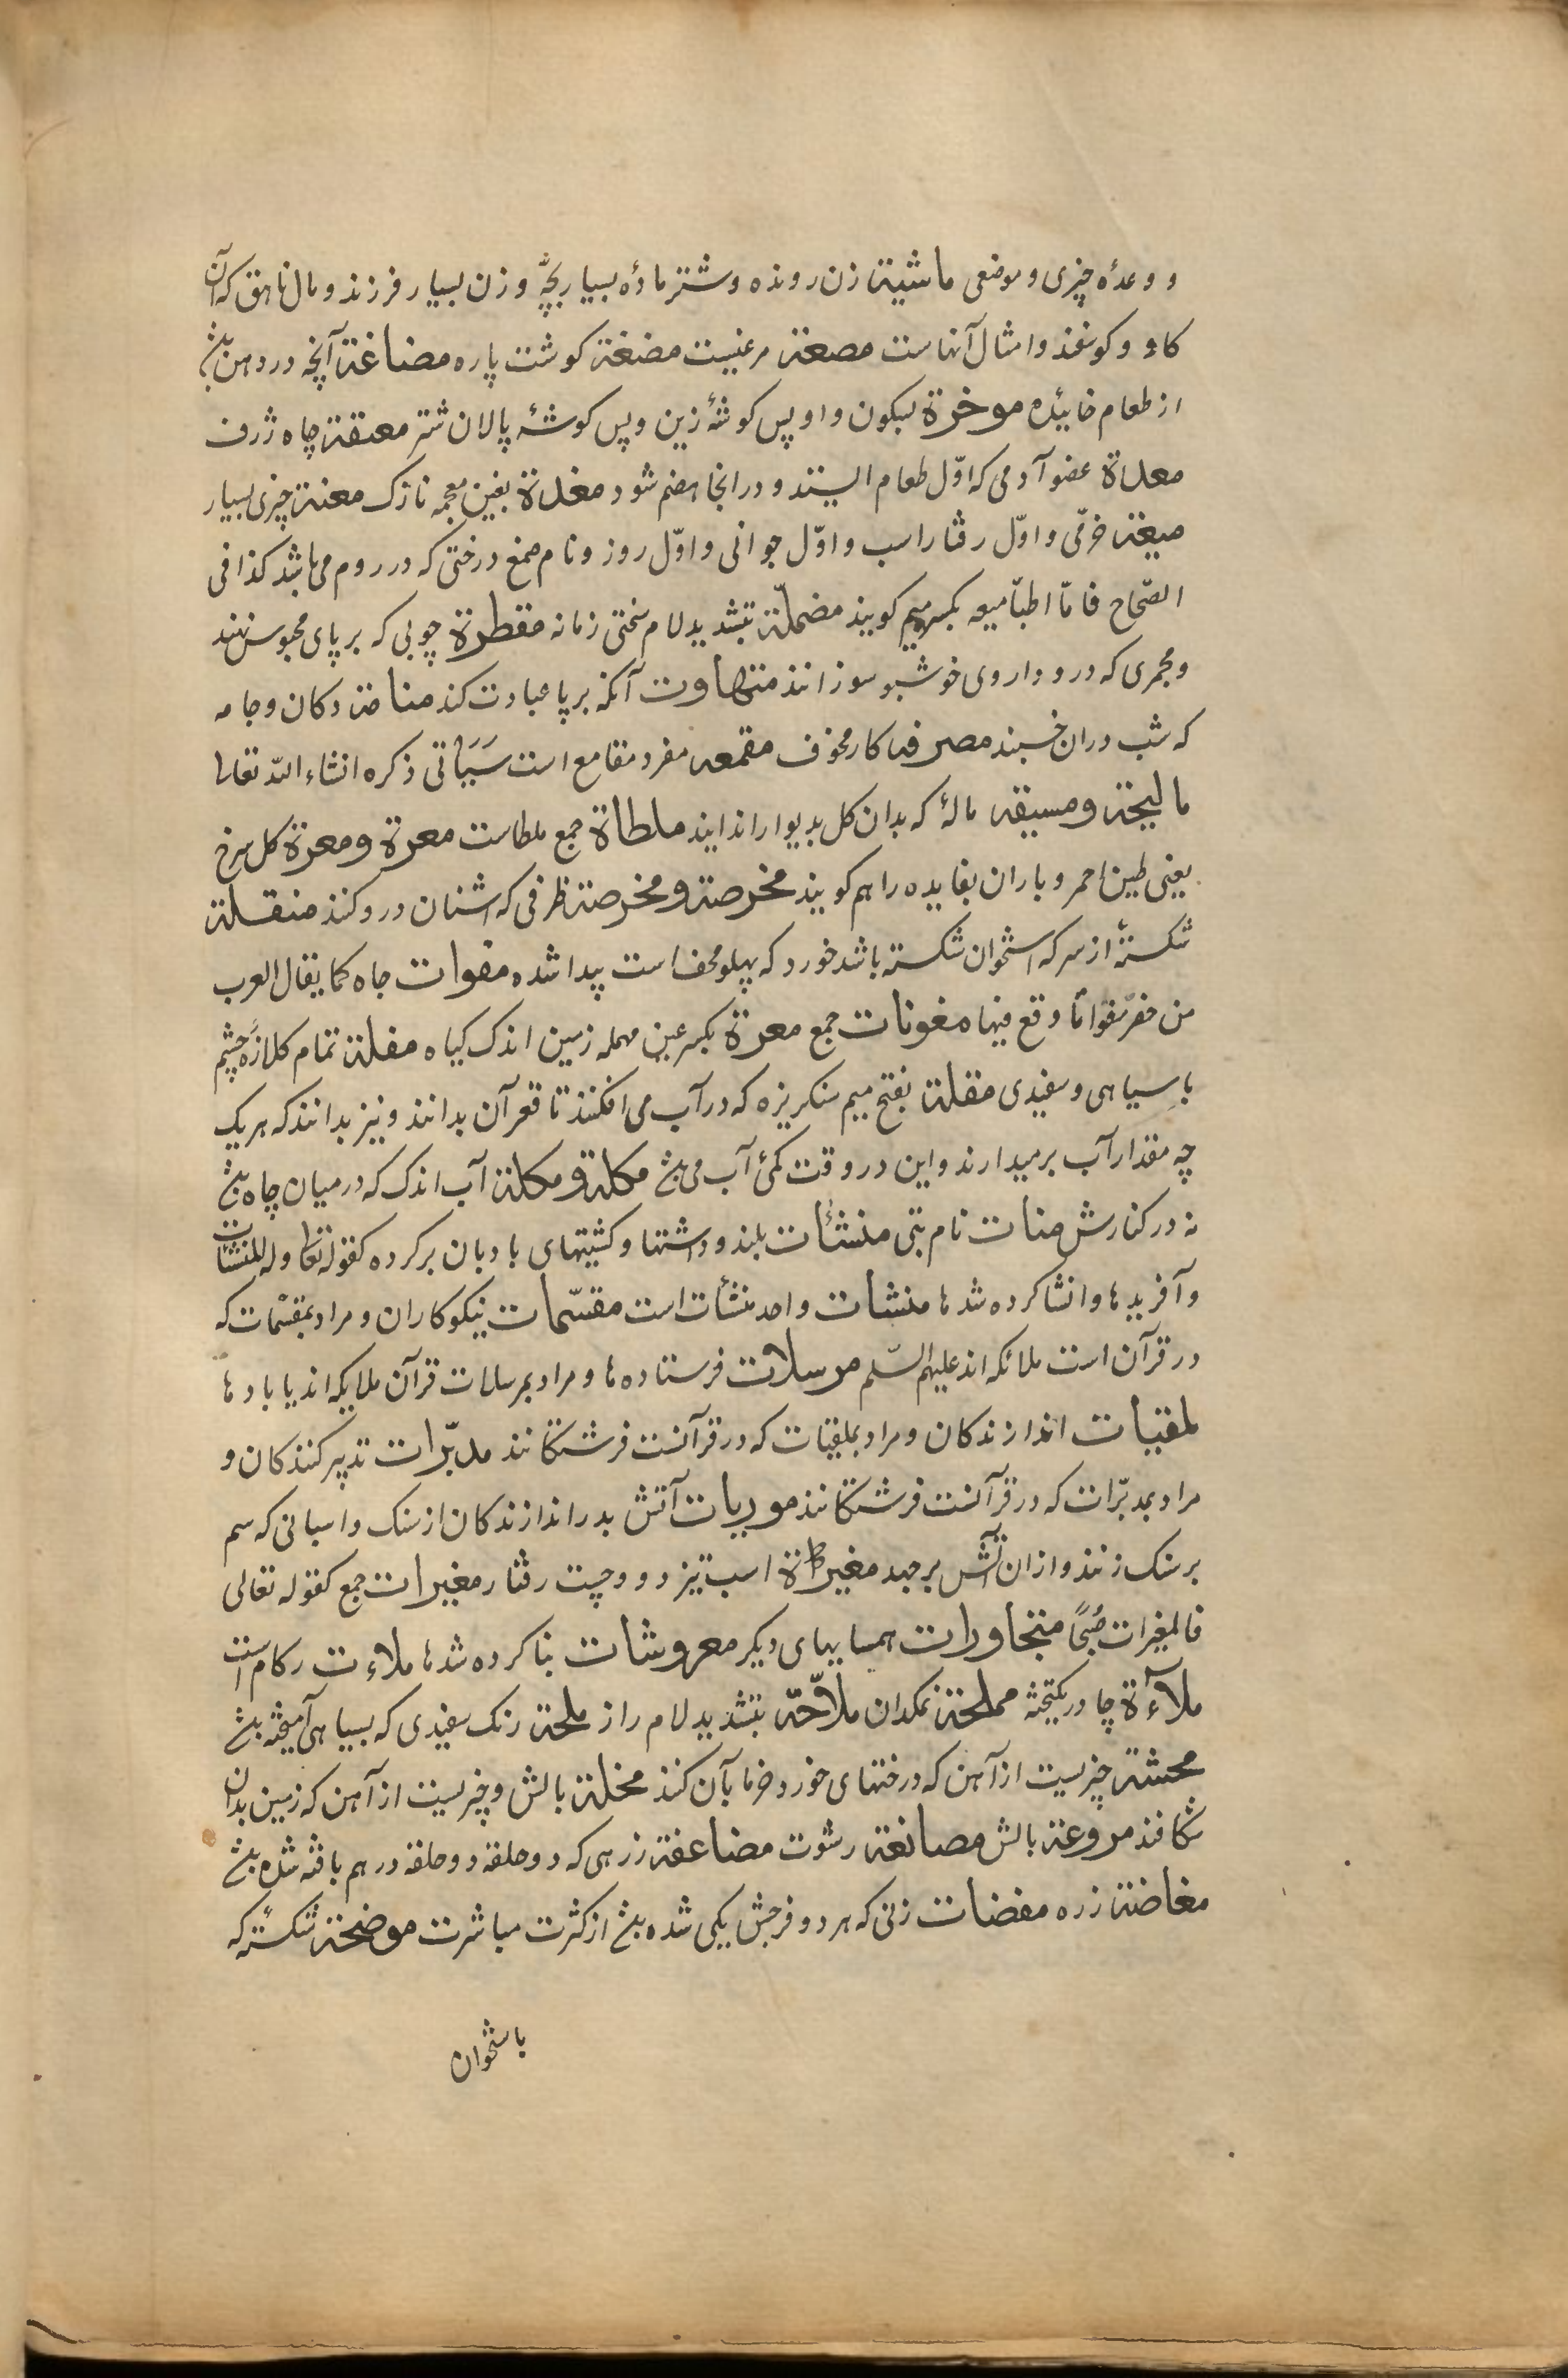 و وعدهٔ چیزی و موضعی ماشیة زن رونده و شتر مادهٔ بسیار بچّه و زن بسیار فرزند و مال ناهق که آن
کاو و کوسفند و امثال آنهاست مصعة مرغیست مضغة کوشت پاره مضاغة آنچه در دهن
از طعام خائیده موخرة بسکون واو پس کوشهٔ زین و پس کوشهٔ پالان شتر معقة چاه ژرف
معدة عضو آدمی که اوّل طعام ایستد و در انجا هضم شود مغدة بغین معجمه نازک معنة چیزی بسیار
میعة خرّمی و اوّل رفتار اسب و اوّل جوانی و اوّل روز و نام صمغ درختی که در روم می باشد کذا فی
الصّحاح فامّا اطبّا میعه بکسر میم کویند مضمحلّة بتشدید لام سختی زمانه مقطرة چوبی که بر پای محبوس نهند
و مجمری که درو داروی خوشبو سوزانند متهاوت آنکه بر پا عبادت کند منامة دکان و جامه
که شب دران خسبند مصرفه کار مخوف مقمعه مفرد مقامع است سَیَأتی ذکره انشاء الله تعالی
مالیجة و مسیقه مالهٔ که بدان کل بدیوار اندایند ملطاة جمع ملطاست معرة و معزة کل سرخ
یعنی طین احمر و باران بفایده را هم کویند مخرصة و مخرصة ظرفی که اشنان درو کنند منقلة
شکستهٔ از سر که استخوان شکسته باشد خورد که پهلو محف است پیدا شده مغوات چاه کما یقال العرب
من حفر مغواتًا وقع فیها مغونات جمع معرة بکسر عین مهمله زمین اندک کیاه مقلة تمام کلازهٔ چشم
با سیاهی و سفیدی مقلة بفتح میم سنکریزه که در آب می افکنند تا قعر آن بدانند و نیز بدانند که هر یک
چه مقدار آب برمیدارند و این در وقت کمئ آب می مکلة و مکلة آب اندک که در میان چاه
نه در کنارش منات نام بتی منشئات بلند و داشتها و کشتیهای بادبان برکرده کقوله تعا وله المنشئات
و آفریدها و انشا کرده شدها منشات واحد منشأت است مقسّمات نیکوکاران و مراد بمقسّمات که
در قرآن است ملائکه اند علیهم السّلم مرسلات فرستاده ها و مراد بمرسلات قرآن ملایکه اند یا بادها
لمقیات اندازندکان و مراد بملقیات که در قرآنست فرشتکانند مدبّرات تدبیر کنندکان و
مراد بمدبّرات که در قرآنست فرشتکانند موریات آتش بدر اندازندکان از سنک و اسبانی که سم
بر سنک زنند و ازان آتش برجهد مغیرة اسب تیز دو و چست رفتار مغیرات جمع کقوله تعالی
فالمغیرات صُبحًا متجاورات همسایهای دیکر معروشات بنا کرده شدها ملاءت رکام است
ملآءة چادر یکتخته مملحة نمکدان ملاّحّة بتشدید لام راز ملحة رنک سفیدی که بسیاهی آمیخته
محشة چیزیست از آهن که درختهای خورد خرما بآن کنند مخلة بالش و چیزیست از آهن که زمین بدان
شکافند مروعة بالش مصانعة رشوت مضاعفة زرهی که دو حلقه دو حلقه درهم بافته شده
مغاضة زره مفضات زنی که هر دو فرجش یکی شده از کثرت مباشرت موضحة شکستهٔ که
باستخوان